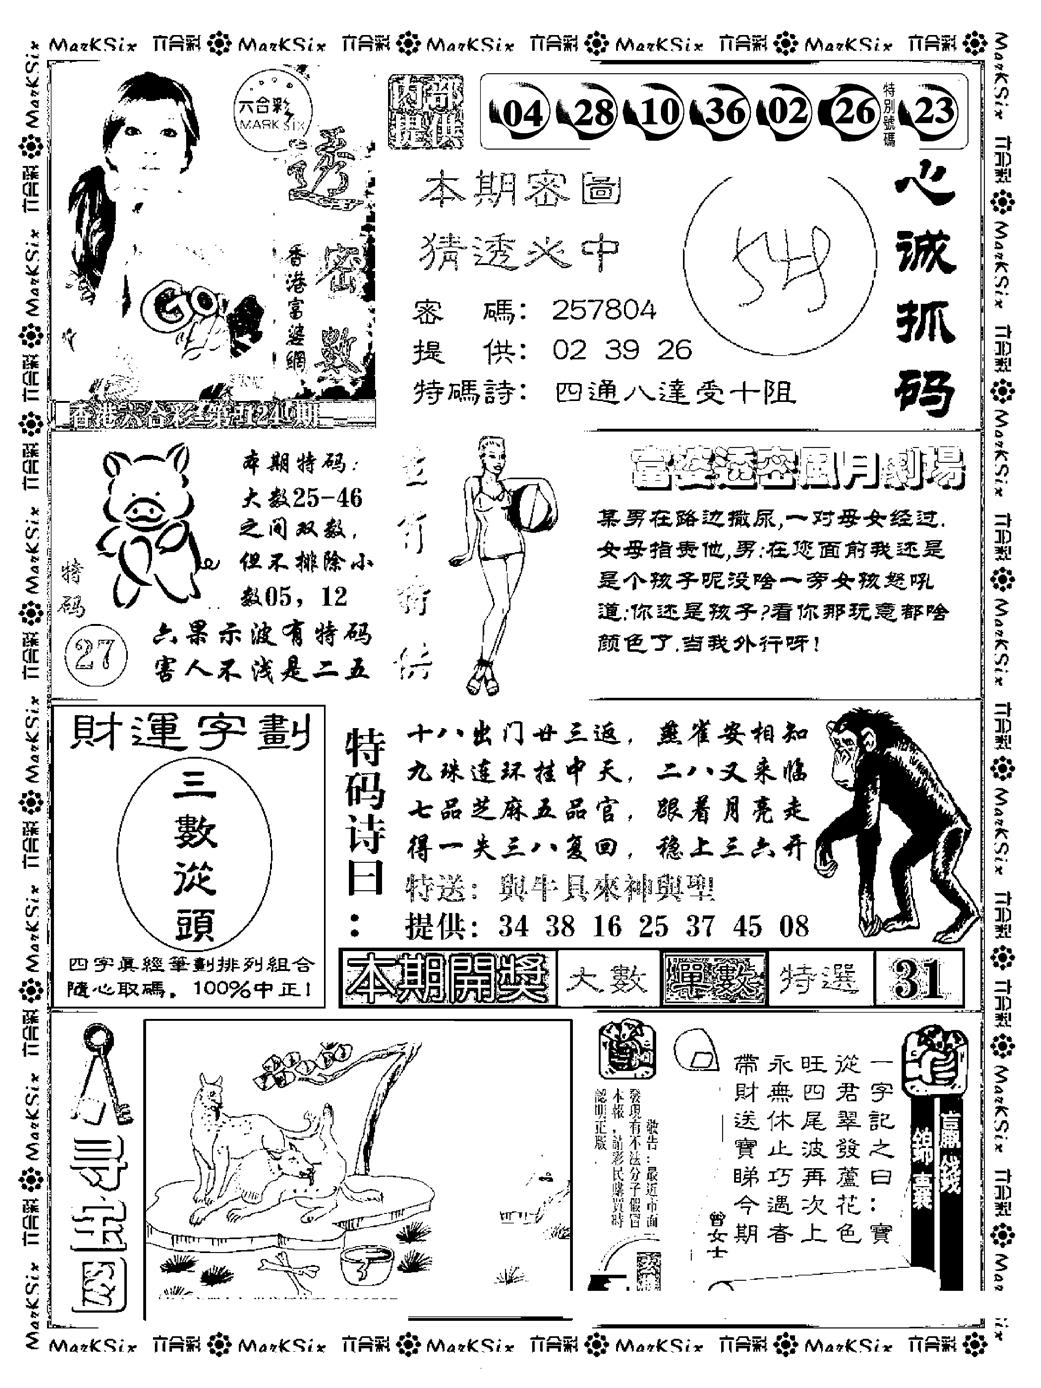 六合彩
MARK SIX
透密數
香港富婆網
内部提供
04 28 10 36 02 26 特別號碼 23
本期密圖
猜透必中
密 碼: 257804
提 供: 02 39 26
特碼詩: 四通八達受十阻
心诚抓码
本期特码:
大数25-46
之间双数,
但不排除小
数05, 12
特码
27
六果示波有特码
害人不浅是二五
富婆透密風月劇場
某男在路边撒尿,一对母女经过.
女母指责他,男:在您面前我还是
是个孩子呢没啥一旁女孩怒吼
道:你还是孩子?看你那玩意都啥
颜色了.当我外行呀!
財運字劃
三數從頭
四字真經筆劃排列組合
隨心取碼, 100%中正!
特码诗曰:
十八出门廿三返, 燕雀安相知
九珠连环挂中天, 二八又来临
七品芝麻五品官, 跟着月亮走
得一失三八复回, 稳上三六开
特送: 與牛具來神與聖
提供: 34 38 16 25 37 45 08
本期開獎 大數 單數 特選 31
敬告:最近市面
發現有不法分子假冒
本報,請彩民購買時
認明正版
贏錢錦囊
一字記之曰:寶
從君翠發蘆花色
旺四尾波再次上
永無休止巧遇春
帶財送寶睇今期
曾女士